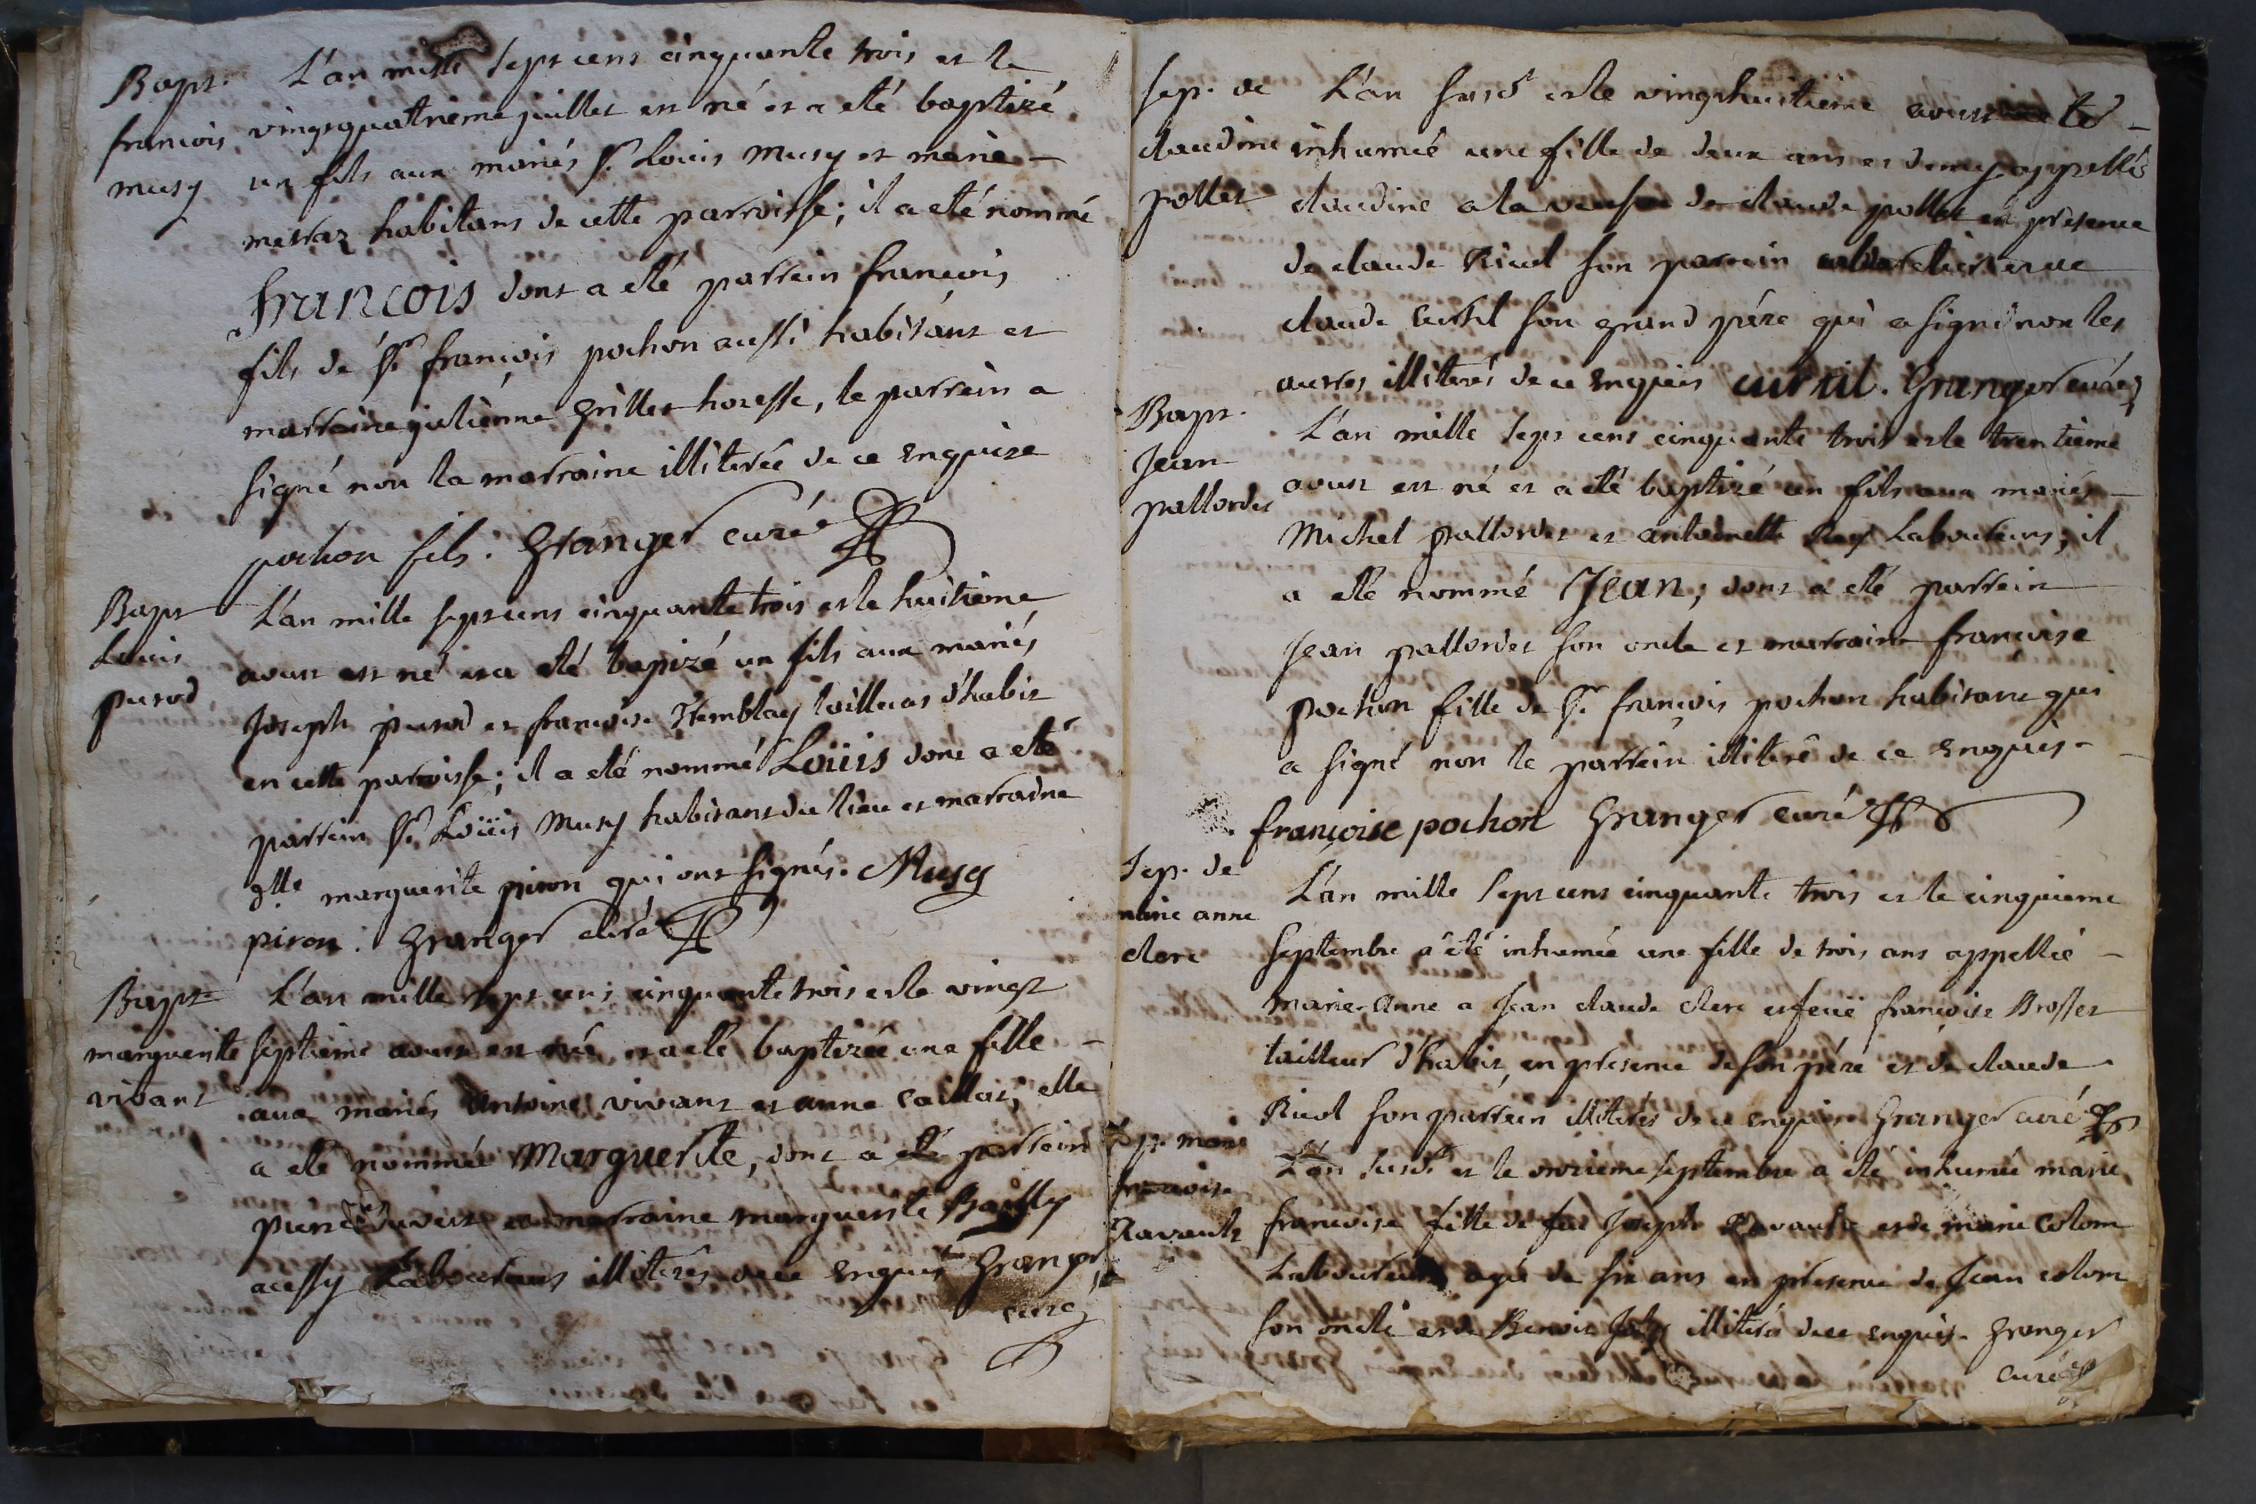 Bapt. L'an mille sept cens cinquante trois et le
françois vingt quatrieme juillet est né et a eté baptizé
musy un fils aux mariés Sr. Louis Musy et marie
metraz habitans de cette parroisse; il a eté nommé
françois dont a eté parrein françois
fils de Sr. françois pochon aussi habitant et
marraine julienne grillet hotesse, le parrein a
signé non la marraine illiterée de ce enquise
pochon fils. Granger curé
Bapt L'an mille sept cens cinquante trois et le huitieme
Louis aoust est né et a eté baptizé un fils aux mariés
purod Joseph purod et françoise tailleurs d'habit
en cette parroisse; il a eté nommé Loüis dont a eté
parrein Sr. Loüis Musy habitant du lieu et marraine
dlle marguerite piron qui ont signés. Musy
piron. Granger curé
Bapt L'an mille sept cens cinquante trois et le vingt
marguerite septieme aoust est née et a eté baptizée une fille
vivant aux mariés Antoine vivant et anne caillat; elle
a eté nommée Marguerite, dont a eté parrein
pierre et marraine marguerite Bailly
Laboureurs illiterés de ce enquis Granger
curé
Sep. de L'an susd et le vingt huitieme aoust a eté
claudine inhumée une fille de deux ans et demy appellée
pollet claudine a la veufve de claude pollet en presence
de claude Ricol son parrein et de
claude curtil son grand pére qui a signé non les
autres illiterés de ce enquis curtil. Granger curé
Bapt. L'an mille sept cens cinquante trois et le trentieme
Jean aoust est né et a eté baptizé un fils aux mariés
pallordet Michel pallordet et antoinette Rey Laboureurs; il
a eté nommé Jean; dont a eté parrein
Jean pallordet son oncle et marraine françoise
pochon fille de Sr. françois pochon habitant qui
a signé non le parrein illiteré de ce enquis
françoise pochon Granger curé
Sep. de L'an mille sept cens cinquante trois et le cinquieme
marie anne septembre a eté inhumée une fille de trois ans appellée
clerc marie-Anne a Jean claude clerc et feüe françoise Brosset
tailleur d'habit, en presence de son pére et de claude
Ricol son parrein illiterés de ce enquis Granger curé
Sep. marie L'an susd et le onzieme septembre a eté inhumée marie
françoise françoise fille de feu Joseph Ravault et de marie colom
Ravault Laboureurs agée de six ans en presence de Jean colom
son oncle et de Benoit Joly illiterés de ce enquis. Granger
curé